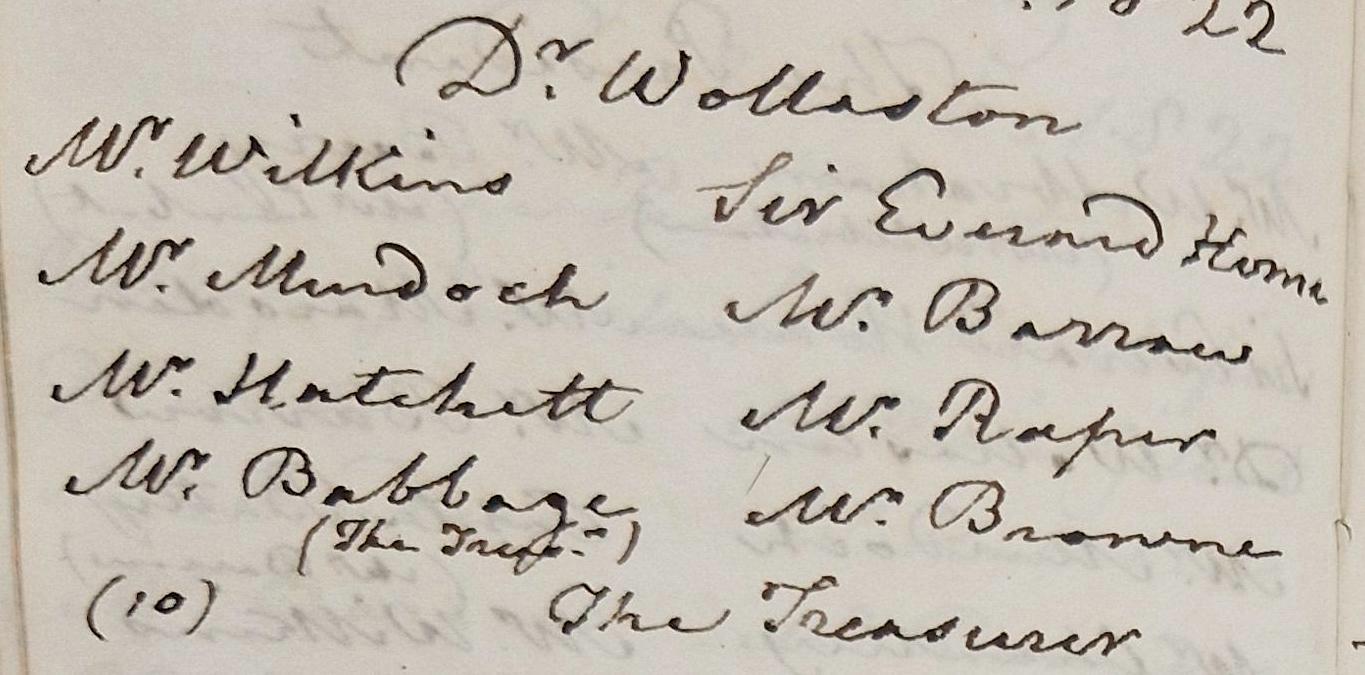 22
Dr. Wollaston
Mr. Wilkins Sir Everard Home
Mr. Murdoch Mr. Barrow
Mr. Hatchett Mr. Raper
Mr. Babbage Mr. Browne
(The Treasr.)
(10) The Treasurer